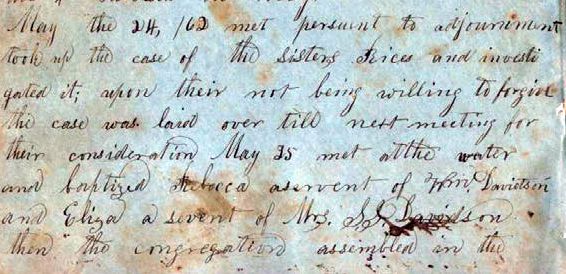 May the 24, /62 met persuent to adjournment
took up the case of the sisters Rices and investi
gated it; upon their not being willing to forgive
the case was laid over till next meeting for
their consideration May 35 met at the water
and baptized Rebecca a servent of Wm. Davidson
and Eliza a sevent of Mrs. S Davidson
then the congregation assembled in the